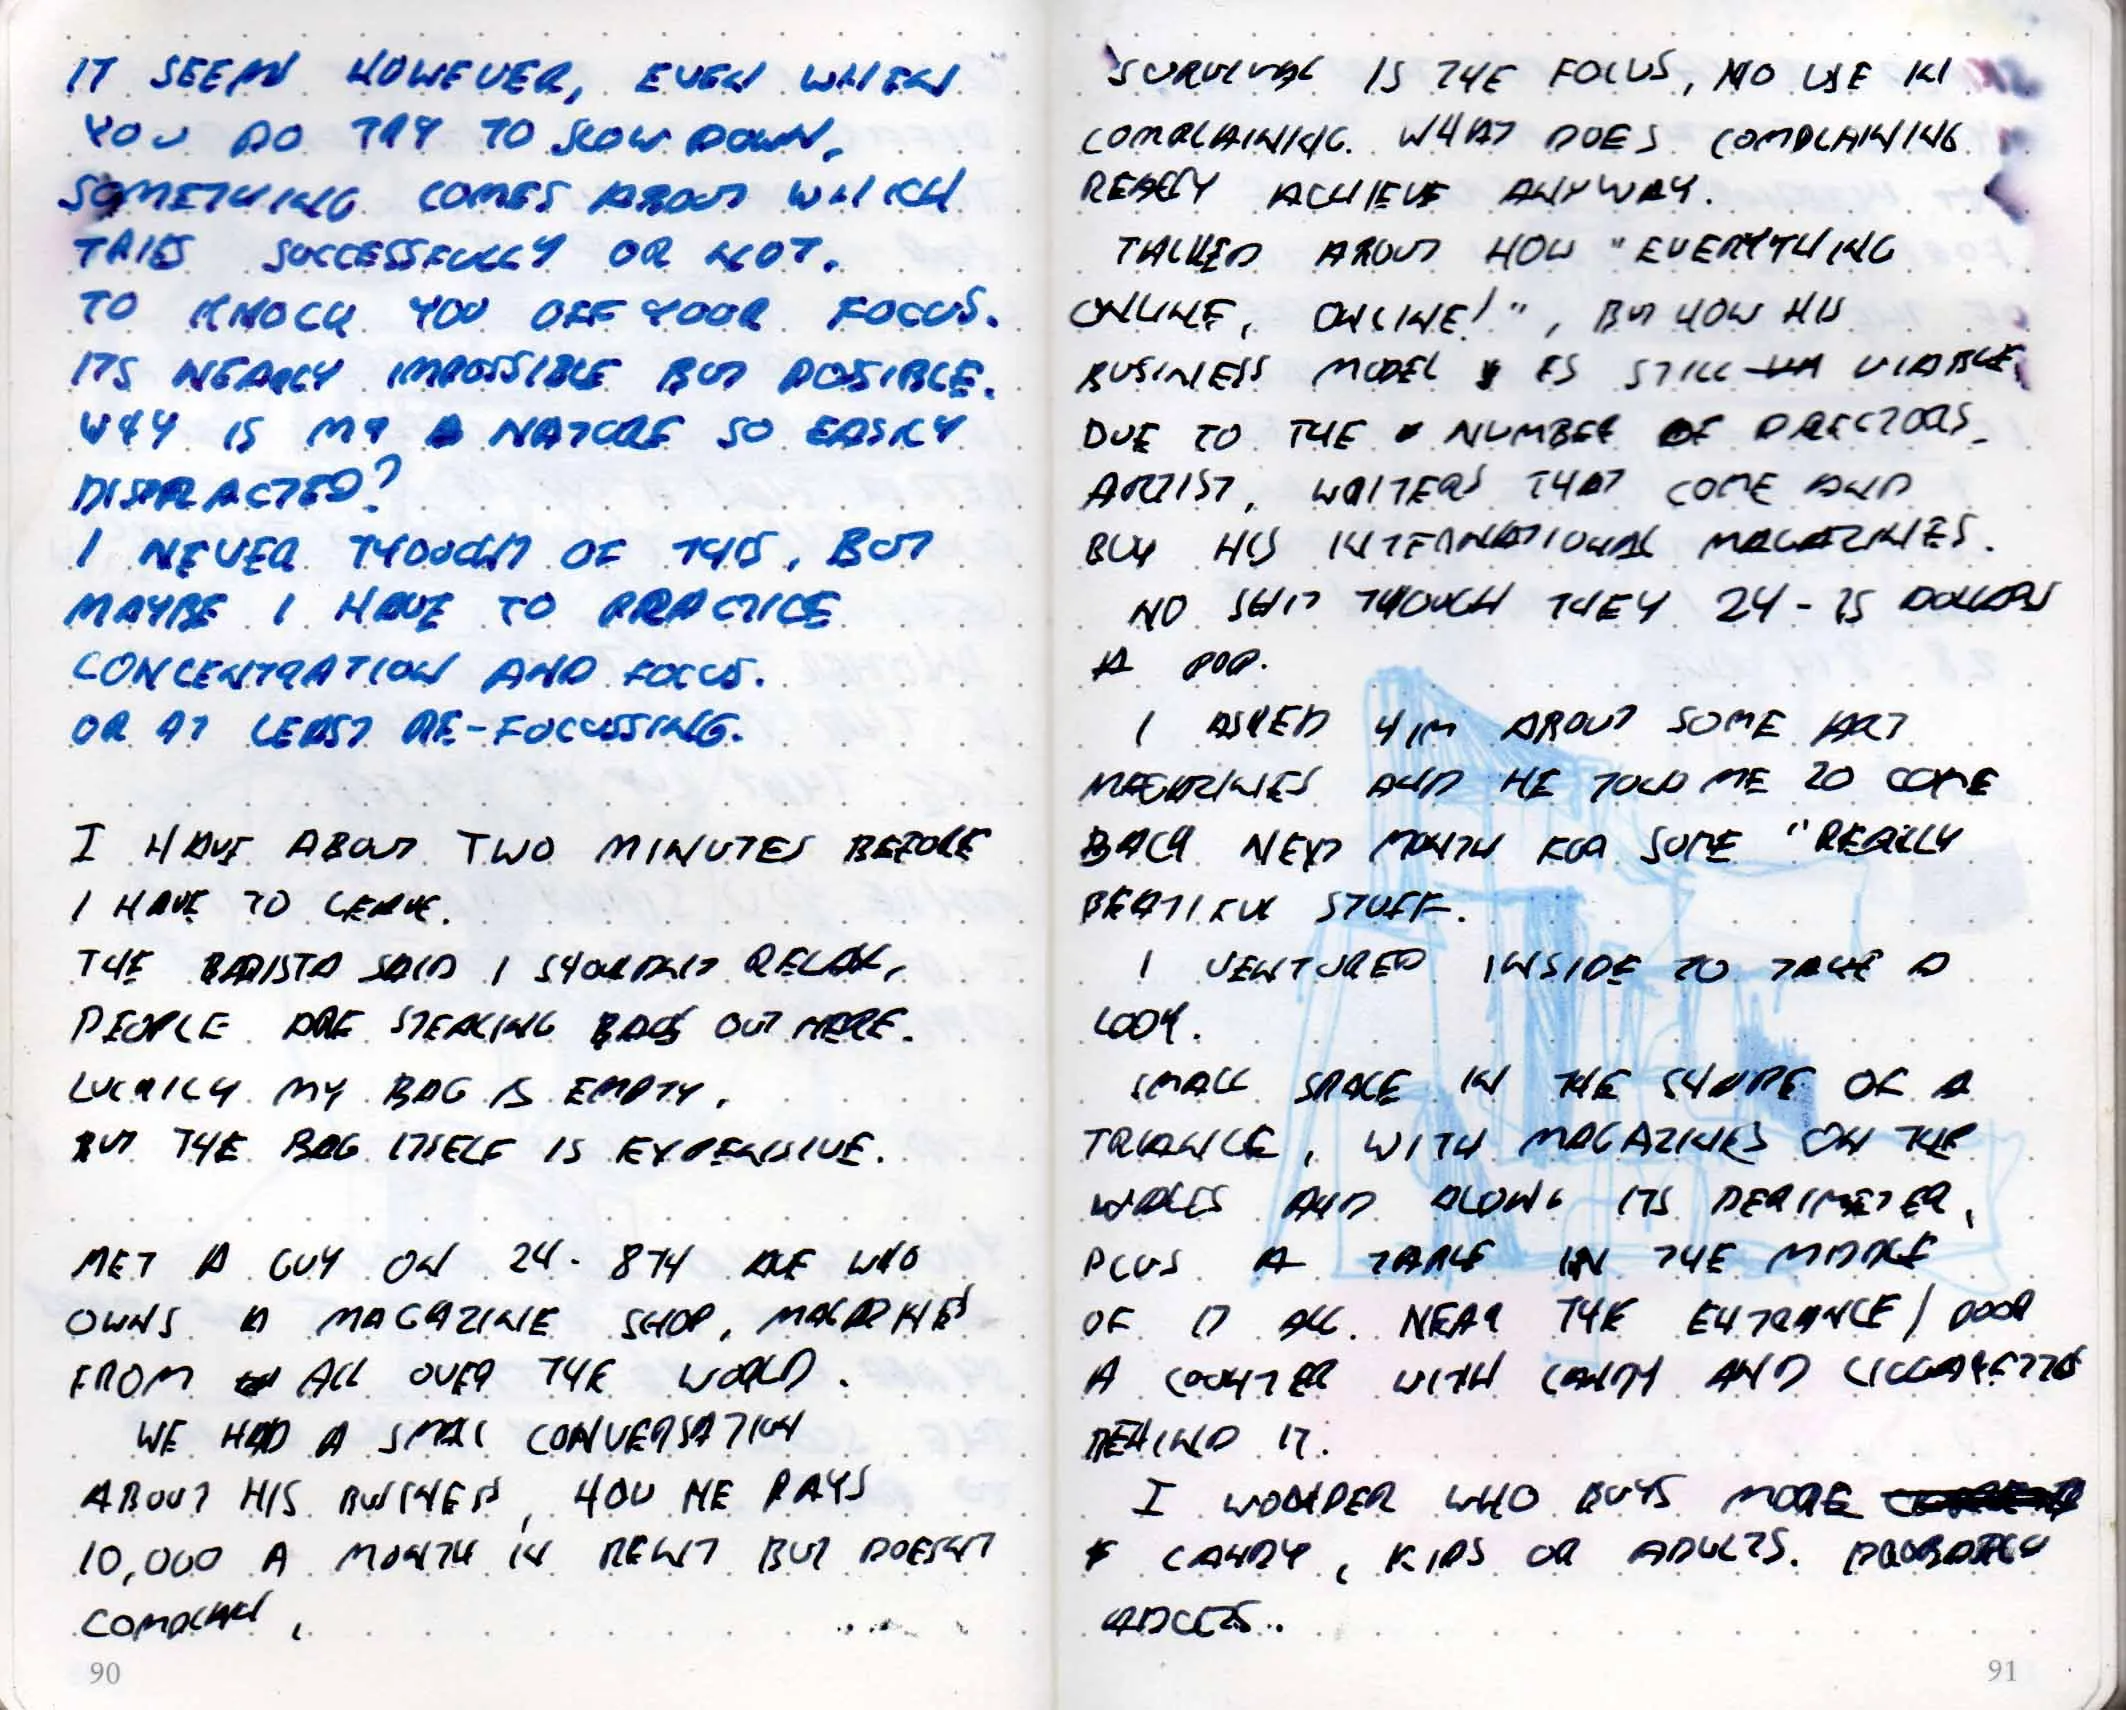 IT SEEMS HOWEVER, EVEN WHEN
YOU DO TRY TO SLOW DOWN,
SOMETHING COMES ABOUT WHICH
TRIES SUCCESSFULLY OR NOT.
TO KNOCK YOU OFF YOUR FOCUS.
ITS NEARLY IMPOSSIBLE BUT POSIBLE.
WHY IS MY NATURE SO EASILY
DISTRACTED?
I NEVER THOUGHT OF THIS, BUT
MAYBE I HAVE TO PRACTICE
CONCENTRATION AND FOCUS.
OR AT LEAST RE-FOCUSSING.
I HAVE ABOUT TWO MINUTES BEFORE
I HAVE TO LEAVE.
THE BARISTA SAID I SHOULDNT RELAX,
PEOPLE ARE STEALING BAGS OUT HERE.
LUCKILY MY BAG IS EMPTY,
BUT THE BAG ITSELF IS EXPENSIVE.
MET A GUY ON 24 - 8TH AVE WHO
OWNS A MAGAZINE SHOP, MAGAZINES
FROM ALL OVER THE WORLD.
WE HAD A SMALL CONVERSATION
ABOUT HIS BUSINESS, HOW HE PAYS
10,000 A MONTH IN RENT BUT DOESNT
COMPLAIN,
90
SURVIVAL IS THE FOCUS, NO USE IN
COMPLAINING. WHAT DOES COMPLAINING
REALLY ACHIEVE ANYWAY.
TALKED ABOUT HOW "EVERYTHING
ONLINE, ONLINE!", BUT HOW HIS
BUSINESS MODEL IS STILL VIABLE,
DUE TO THE NUMBER OF DIRECTORS,
ARTIST, WRITERS THAT COME AND
BUY HIS INTERNATIONAL MAGAZINES.
NO SHIT THOUGH THEY 24-25 DOLLARS
A POP.
I ASKED HIM ABOUT SOME ART
MAGAZINES AND HE TOLD ME TO COME
BACK NEXT MONTH FOR SOME "REALLY
BEATIFUL STUFF.
I VENTURED INSIDE TO TAKE A
LOOK.
SMALL SPACE IN THE SHAPE OF A
TRIANGLE, WITH MAGAZINES ON THE
WALLS AND ALONG ITS PERIMETER,
PLUS A TABLE IN THE MIDDLE
OF IT ALL. NEAR THE ENTRANCE/DOOR
A COUNTER WITH CANDY AND CIGGARETTES
BEHIND IT.
I WONDER WHO BUYS MORE
CANDY, KIDS OR ADULTS. PROBABLY
ADULTS..
91